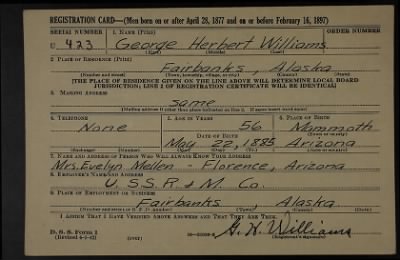 REGISTRATION CARD—(Men born on or after April 28, 1877 and on or before February 16, 1897)
SERIAL NUMBER 1. NAME (Print) ORDER NUMBER
U 423 George Herbert Williams
(First) (Middle) (Last)
2. PLACE OF RESIDENCE (Print)
Fairbanks, Alaska
(Number and street) (Town, township, village, or city) (County) (State)
[THE PLACE OF RESIDENCE GIVEN ON THE LINE ABOVE WILL DETERMINE LOCAL BOARD
JURISDICTION; LINE 2 OF REGISTRATION CERTIFICATE WILL BE IDENTICAL]
3. MAILING ADDRESS
same
[Mailing address if other than place indicated on line 2. If same insert word same]
4. TELEPHONE 5. AGE IN YEARS 6. PLACE OF BIRTH
None 56 Mammoth
DATE OF BIRTH
May 22, 1885 Arizona
(Mo.) (Day) (Yr.) (State or country)
7. NAME AND ADDRESS OF PERSON WHO WILL ALWAYS KNOW YOUR ADDRESS
Mrs. Evelyn Mellen - Florence, Arizona
8. EMPLOYER'S NAME AND ADDRESS
U. S. S. R. & M. Co.
9. PLACE OF EMPLOYMENT OR BUSINESS
Fairbanks, Alaska.
(Number and street or R. F. D. number) (Town) (County) (State)
I AFFIRM THAT I HAVE VERIFIED ABOVE ANSWERS AND THAT THEY ARE TRUE.
D. S. S. Form 1
(Revised 4-1-42) (over)
G. H. Williams